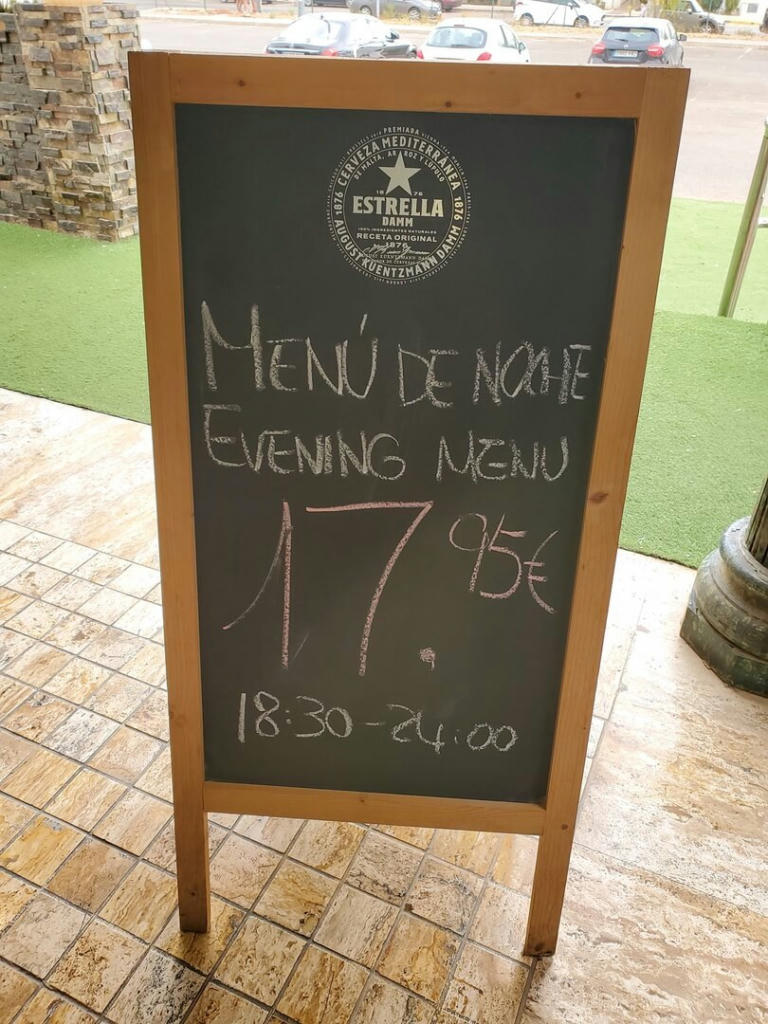 PREMIADA
CERVEZA MEDITERRÁNEA
DE MALTA, ARROZ Y LÚPULO
1876
1876
1876
ESTRELLA
DAMM
100% INGREDIENTES NATURALES
RECETA ORIGINAL
1876
AUGUST KUENTZMANN DAMM
MENÚ DE NOCHE
EVENING MENU
17.95€
18:30-24:00